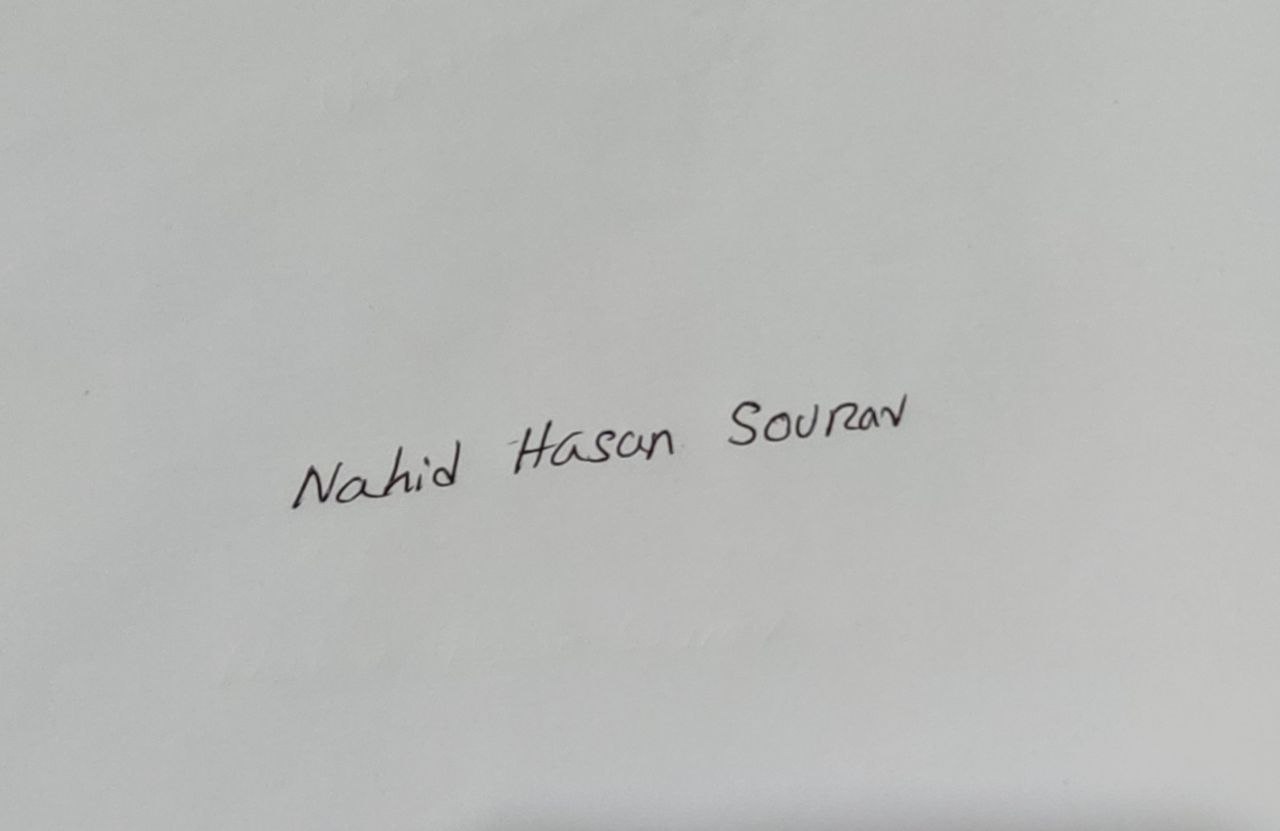 Nahid Hasan Sourav